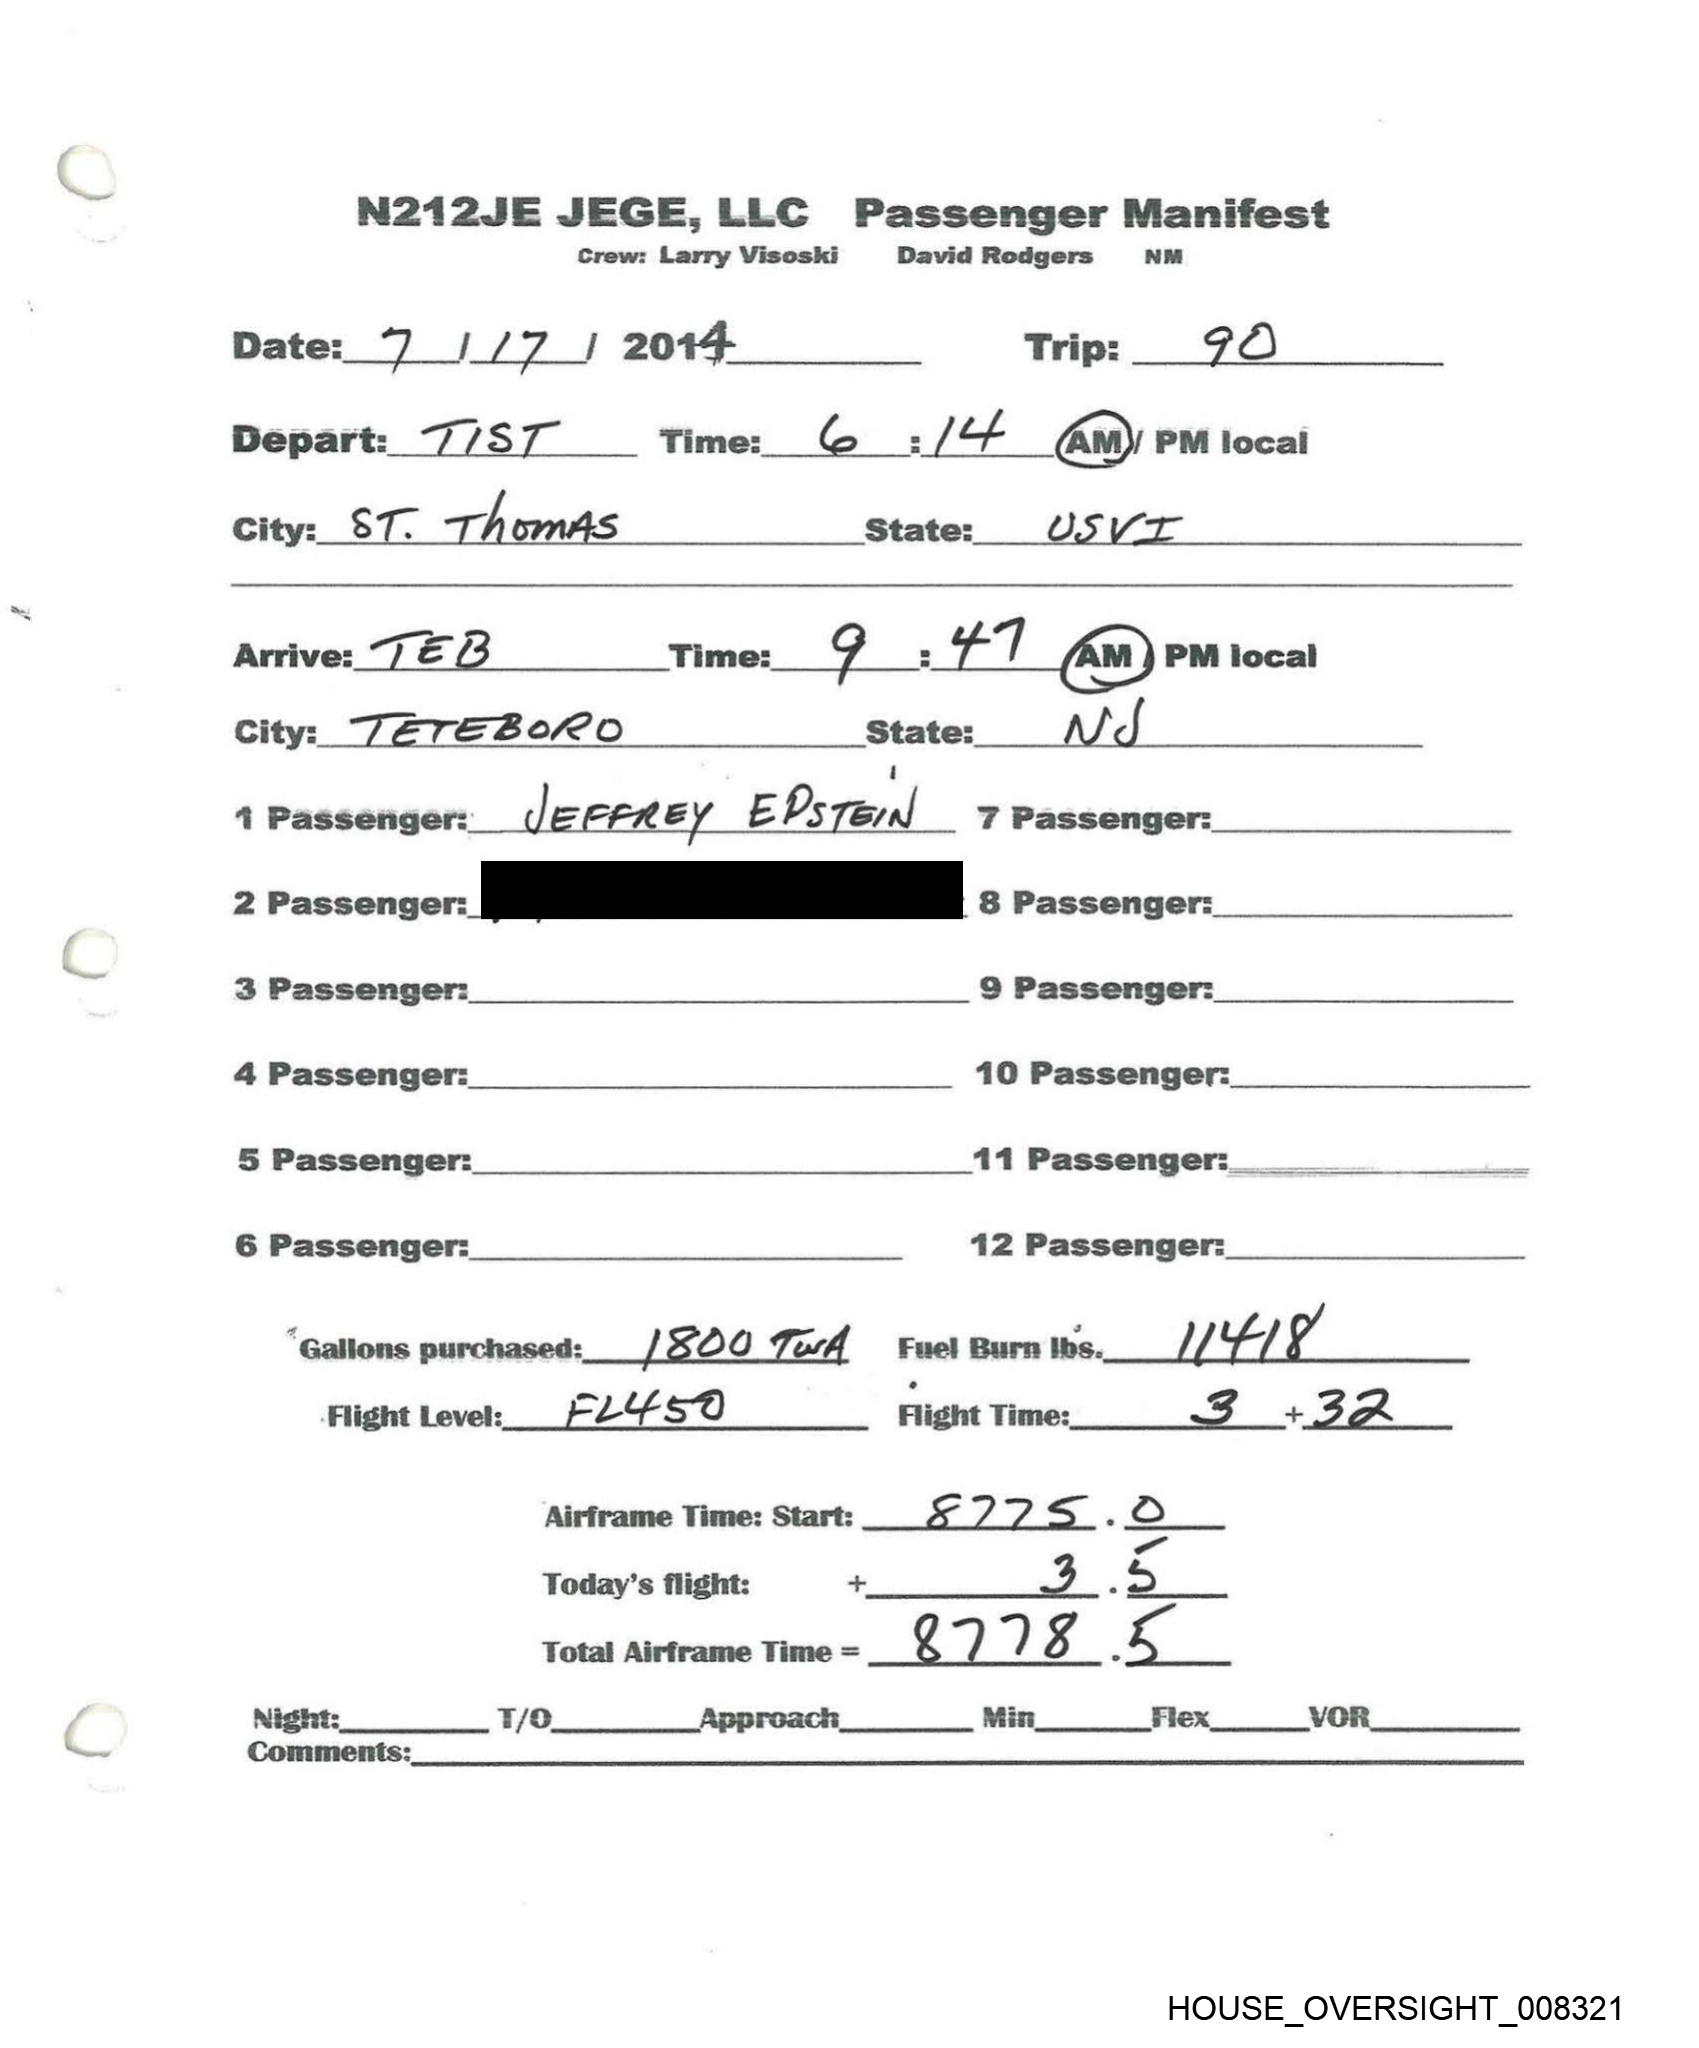 N212JE JEGE, LLC Passenger Manifest
Crew: Larry Visoski David Rodgers NM
Date: 7 / 17 / 2014 Trip: 90
Depart: TIST Time: 6 : 14 AM / PM local
City: ST. ThomAS State: USVI
Arrive: TEB Time: 9 : 47 AM / PM local
City: TETEBORO State: NJ
1 Passenger: JEFFREY EPSTEIN 7 Passenger:
2 Passenger: 8 Passenger:
3 Passenger: 9 Passenger:
4 Passenger: 10 Passenger:
5 Passenger: 11 Passenger:
6 Passenger: 12 Passenger:
Gallons purchased: 1800 TWA Fuel Burn lbs. 11418
Flight Level: FL450 Flight Time: 3 + 32
Airframe Time: Start: 8775 . 0
Today's flight: + 3 . 5
Total Airframe Time = 8778 . 5
Night: T/O Approach Min Flex VOR
Comments:
HOUSE_OVERSIGHT_008321